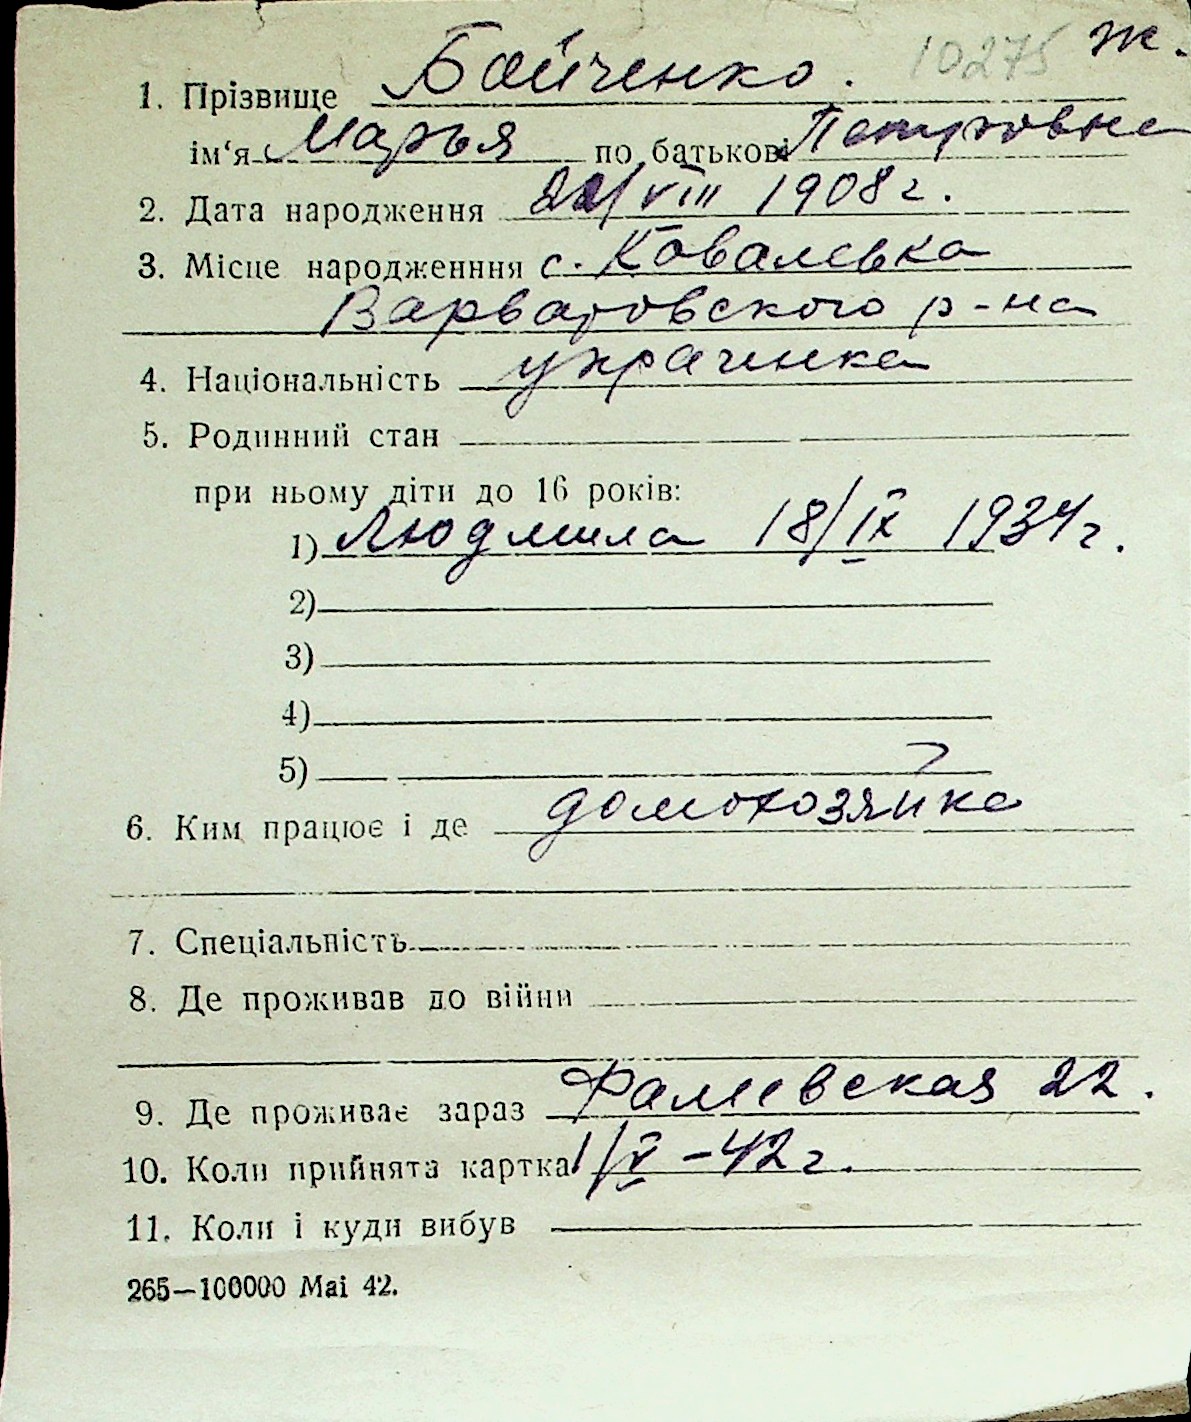 10275 ж.
1. Прізвище Бойченко.
ім‘я Марья по батькові Петровна
2. Дата народження 22/VIII 1908 г.
3. Місце народженння с. Ковалевка
Варваровского р-на
4. Національність украинка
5. Родинний стан
при ньому діти до 16 років:
1) Людмила 18/IX 1934 г.
2)
3)
4)
5)
6. Ким працює і де домохозяйка
7. Спеціальність
8. Де проживав до війни
9. Де проживає зараз Фалеевская 22.
10. Коли прийнята картка 1/V – 42 г.
11. Коли і куди вибув
265—100000 Mai 42.